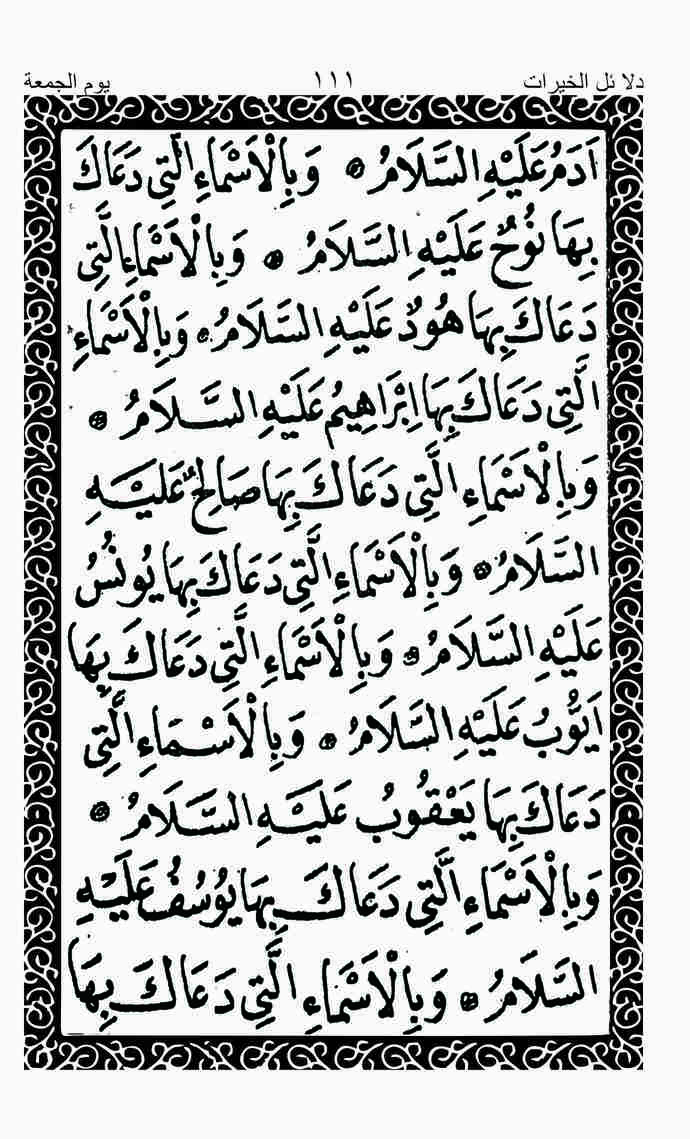 دلائل الخيرات ١١١ يوم الجمعة
اٰدَمُ عَلَيْهِ السَّلَامُ ۞ وَبِالْاَسْمَاءِ الَّتِى دَعَاكَ
بِهَا نُوْحٌ عَلَيْهِ السَّلَامُ ۞ وَبِالْاَسْمَاءِ الَّتِى
دَعَاكَ بِهَا هُوْدٌ عَلَيْهِ السَّلَامُ ۞ وَبِالْاَسْمَاءِ
الَّتِى دَعَاكَ بِهَا اِبْرَاهِيمُ عَلَيْهِ السَّلَامُ ۞
وَبِالْاَسْمَاءِ الَّتِى دَعَاكَ بِهَا صَالِحٌ عَلَيْهِ
السَّلَامُ ۞ وَبِالْاَسْمَاءِ الَّتِى دَعَاكَ بِهَا يُونُسُ
عَلَيْهِ السَّلَامُ ۞ وَبِالْاَسْمَاءِ الَّتِى دَعَاكَ بِهَا
اَيُّوْبُ عَلَيْهِ السَّلَامُ ۞ وَبِالْاَسْمَاءِ الَّتِى
دَعَاكَ بِهَا يَعْقُوبُ عَلَيْهِ السَّلَامُ ۞
وَبِالْاَسْمَاءِ الَّتِى دَعَاكَ بِهَا يُوْسُفُ عَلَيْهِ
السَّلَامُ ۞ وَبِالْاَسْمَاءِ الَّتِى دَعَاكَ بِهَا